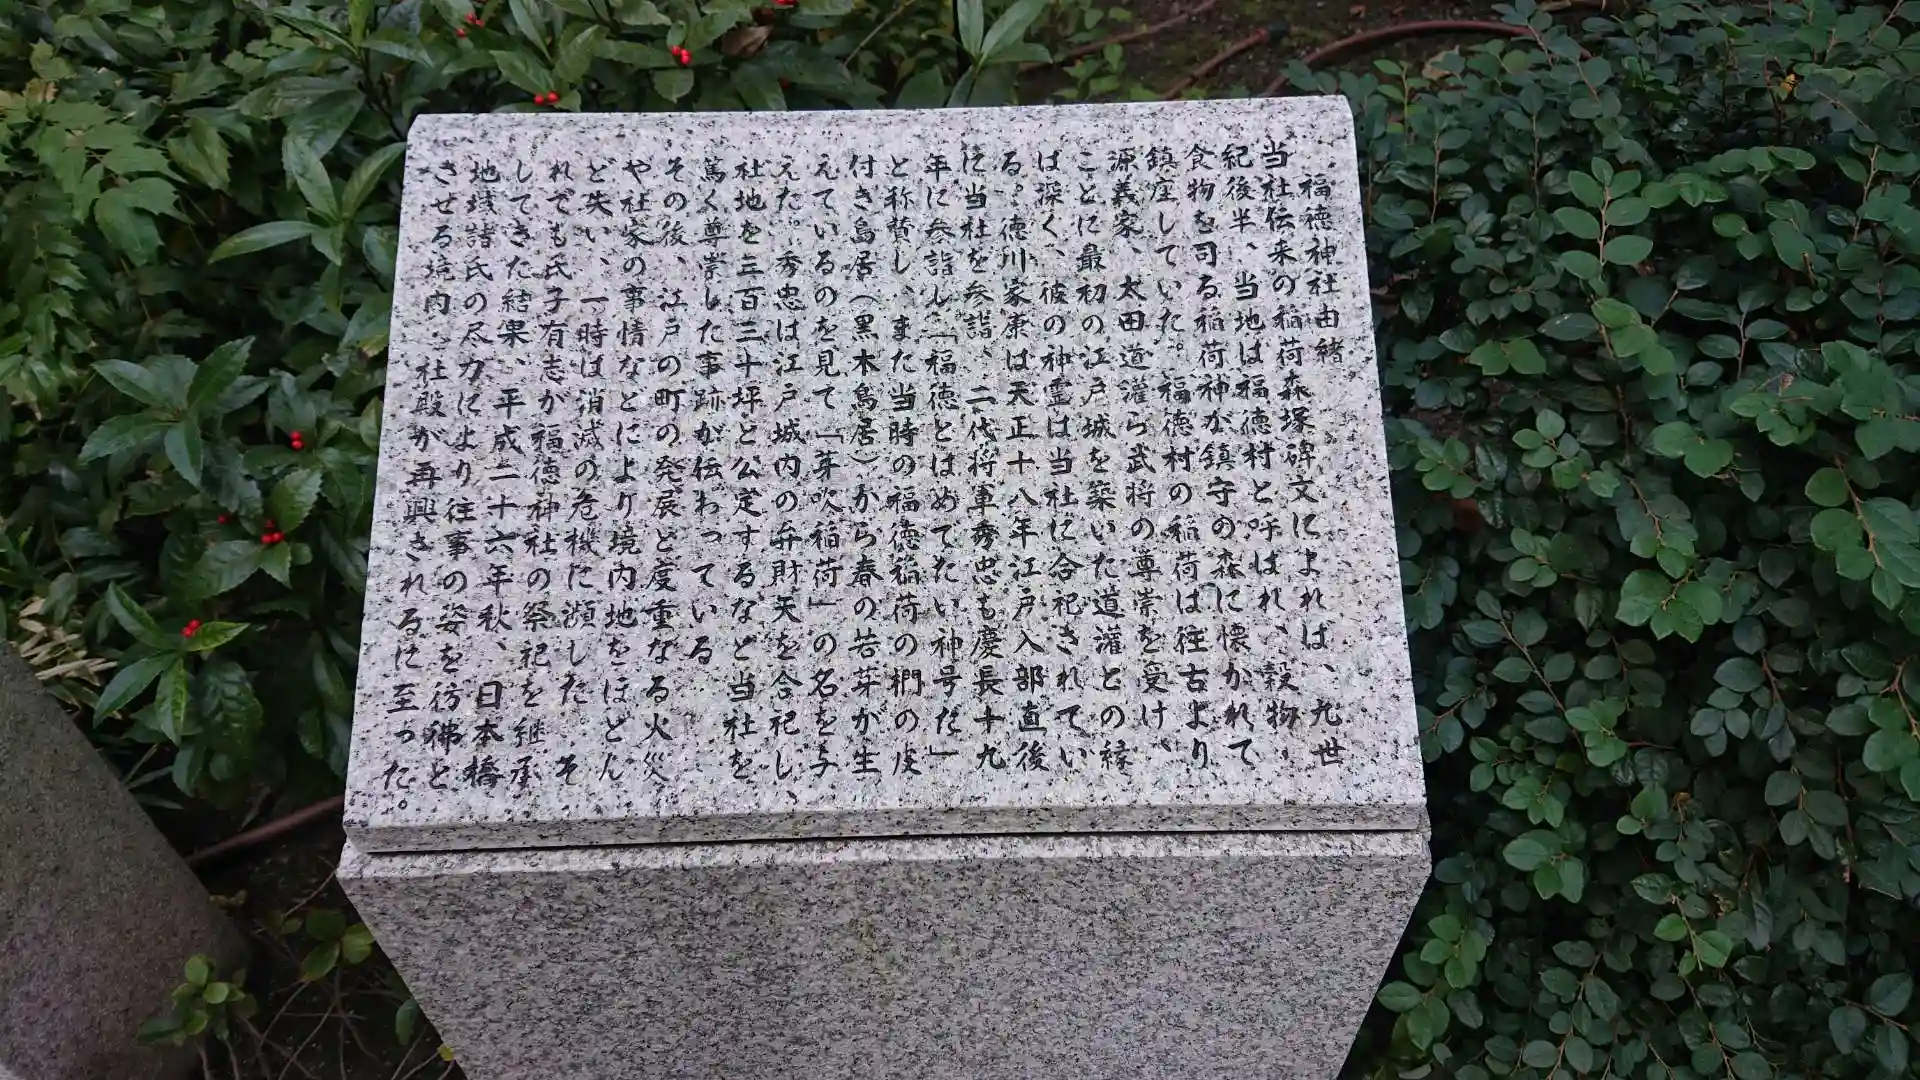 福徳神社由緒
当社伝来の稲荷森塚碑文によれば、九世
紀後半、当地は福徳村と呼ばれ、穀物・
食物を司る稲荷神が鎮守の森に懐かれて
鎮座していた。福徳村の稲荷は往古より
源義家、太田道灌ら武将の尊崇を受け、
ことに最初の江戸城を築いた道灌との縁
は深く、彼の神霊は当社に合祀されてい
る。徳川家康は天正十八年江戸入部直後
に当社を参詣、二代将軍秀忠も慶長十九
年に参詣し「福徳とはめでたい神号だ」
と称賛し、また当時の福徳稲荷の椚の皮
付き鳥居（黒木鳥居）から春の若芽が生
えているのを見て「芽吹稲荷」の名を与
えた。秀忠は江戸城内の弁財天を合祀し、
社地を三百三十坪と公定するなど当社を
篤く尊崇した事跡が伝わっている
その後、江戸の町の発展と度重なる火災
や社家の事情などにより境内地をほとん
ど失い、一時は消滅の危機に瀕した。そ
れでも氏子有志が福徳神社の祭祀を継承
してきた結果、平成二十六年秋、日本橋
地域諸氏の尽力により往事の姿を彷彿と
させる境内・社殿が再興されるに至った。